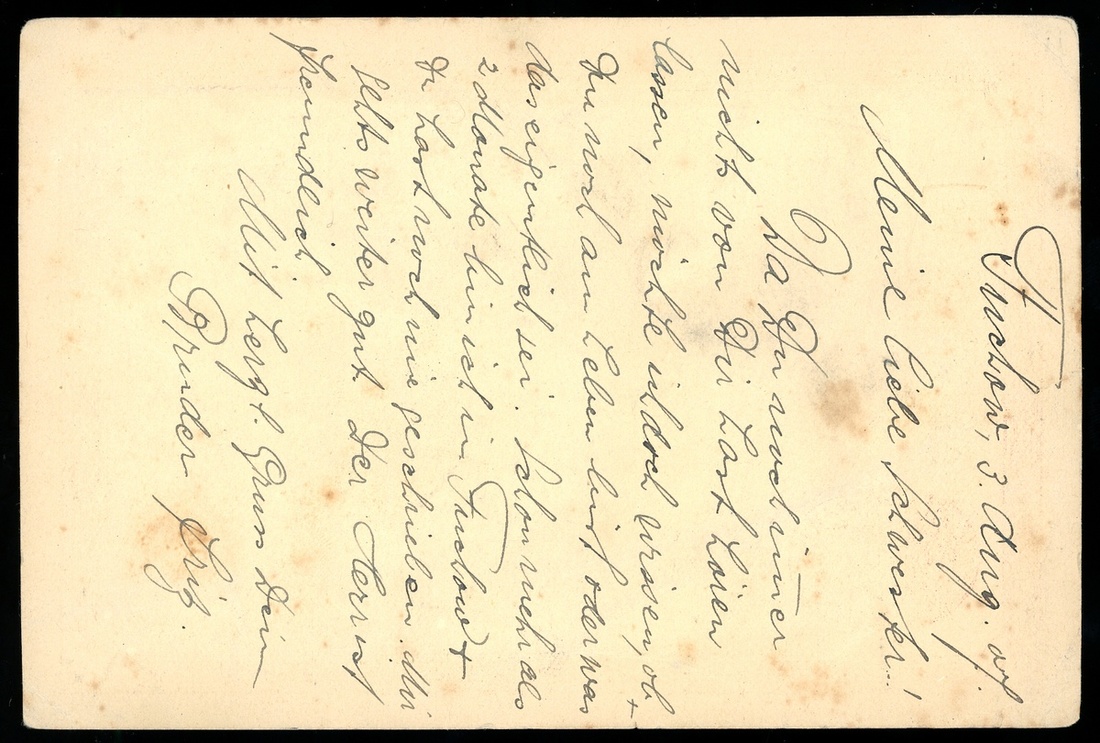 Tuchow, 3. Aug. 07.
Meine liebe Schwester!
Da Du noch im̅er
nichts von Dir hast hören
lassen, möchte ich doch wissen, ob +
Du noch am Leben bist oder was
das eigentlich sei. Schon mehr als
2 Monate bin ich in Tuchow +
Du hast noch nie geschrieben. Mir
gehts weiter gut. Der Herr ist
freundlich
Mit herzl. Gruss Dein
Bruder